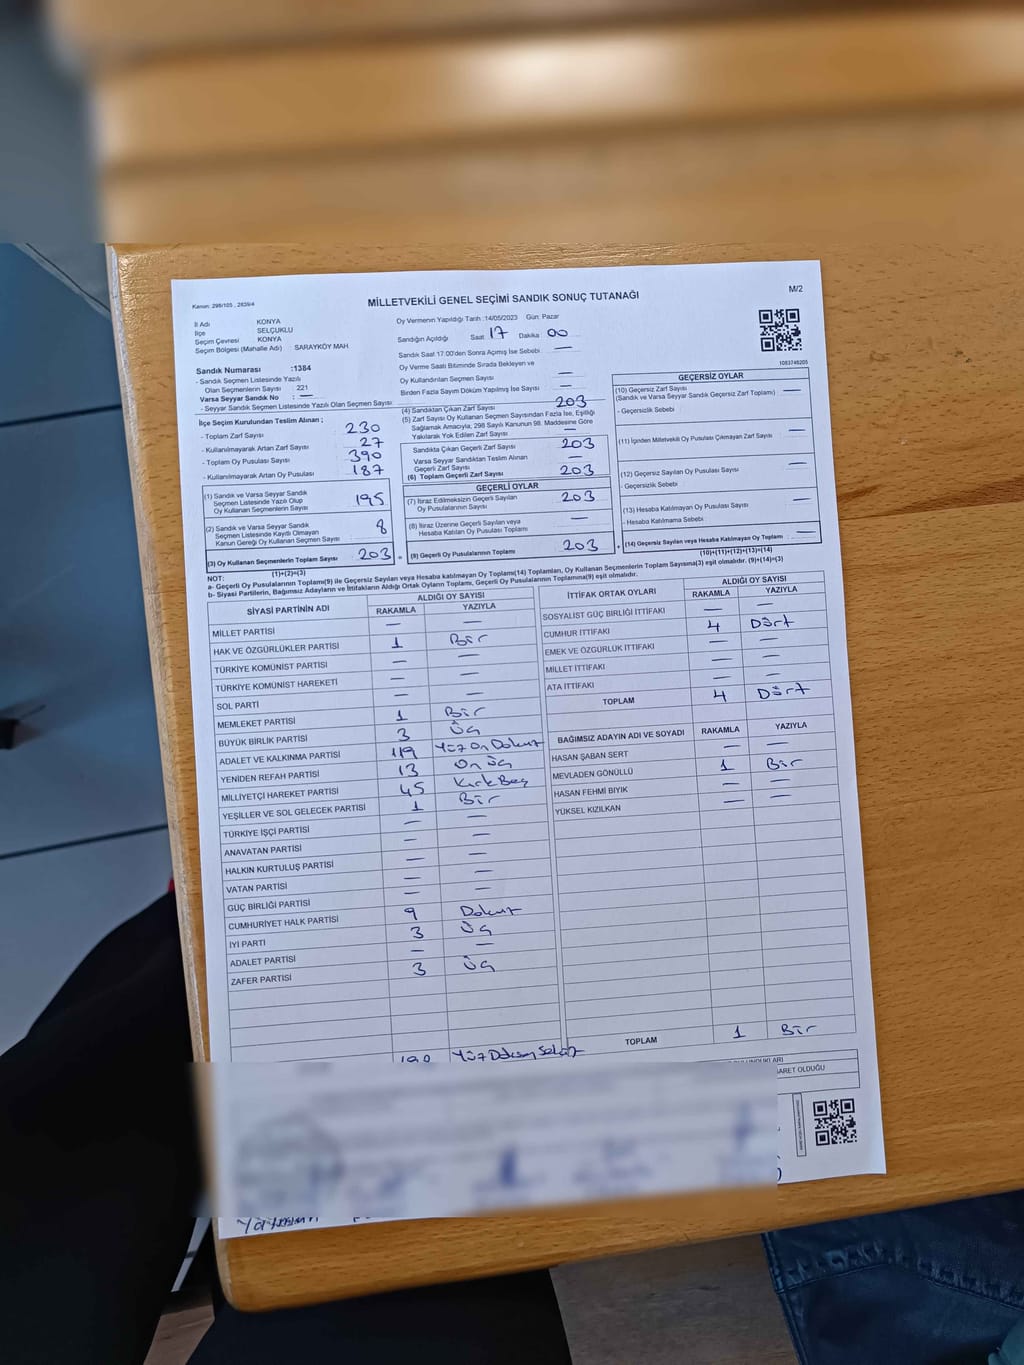 Kanun: 298/105 , 2839/4
MİLLETVEKİLİ GENEL SEÇİMİ SANDIK SONUÇ TUTANAĞI
M/2
İl Adı KONYA
İlçe SELÇUKLU
Seçim Çevresi KONYA
Seçim Bölgesi (Mahalle Adı) : SARAYKÖY MAH.
Sandık Numarası :1384
- Sandık Seçmen Listesinde Yazılı
Olan Seçmenlerin Sayısı : 221
Varsa Seyyar Sandık No : —
- Seyyar Sandık Seçmen Listesinde Yazılı Olan Seçmen Sayısı
İlçe Seçim Kurulundan Teslim Alınan ;
- Toplam Zarf Sayısı 230
- Kullanılmayarak Artan Zarf Sayısı 27
- Toplam Oy Pusulası Sayısı 390
- Kullanılmayarak Artan Oy Pusulası 187
(1) Sandık ve Varsa Seyyar Sandık
Seçmen Listesinde Yazılı Olup
Oy Kullanan Seçmenlerin Sayısı 195
(2) Sandık ve Varsa Seyyar Sandık
Seçmen Listesinde Kaydı Olmayan
Kanun Gereği Oy Kullanan Seçmen Sayısı 8
(3) Oy Kullanan Seçmenlerin Toplam Sayısı 203 =
(1)+(2)=(3)
Oy Vermenin Yapıldığı Tarih :14/05/2023 Gün: Pazar
Sandığın Açıldığı Saat 17 Dakika 00
Sandık Saat 17:00'den Sonra Açılmış İse Sebebi : —
Oy Verme Saati Bitiminde Sırada Bekleyen ve
Oy Kullandırılan Seçmen Sayısı —
Birden Fazla Sayım Döküm Yapılmış İse Sayısı —
(4) Sandıktan Çıkan Zarf Sayısı 203
(5) Zarf Sayısı Oy Kullanan Seçmen Sayısından Fazla İse, Eşitliği
Sağlamak Amacıyla, 298 Sayılı Kanunun 98. Maddesine Göre
Yakılarak Yok Edilen Zarf Sayısı —
Sandıkta Çıkan Geçerli Zarf Sayısı 203
Varsa Seyyar Sandıktan Teslim Alınan
Geçerli Zarf Sayısı —
(6) Toplam Geçerli Zarf Sayısı 203
GEÇERLİ OYLAR
(7) İtiraz Edilmeksizin Geçerli Sayılan
Oy Pusulalarının Sayısı 203
(8) İtiraz Üzerine Geçerli Sayılan veya
Hesaba Katılan Oy Pusulası Toplamı —
(9) Geçerli Oy Pusulalarının Toplamı 203 +
1083748205
GEÇERSİZ OYLAR
(10) Geçersiz Zarf Sayısı —
(Sandık ve Varsa Seyyar Sandık Geçersiz Zarf Toplamı)
- Geçersizlik Sebebi
(11) İçinden Milletvekili Oy Pusulası Çıkmayan Zarf Sayısı —
(12) Geçersiz Sayılan Oy Pusulası Sayısı —
- Geçersizlik Sebebi
(13) Hesaba Katılmayan Oy Pusulası Sayısı —
- Hesaba Katılmama Sebebi
(14) Geçersiz Sayılan veya Hesaba Katılmayan Oy Toplamı —
(10)+(11)+(12)+(13)=(14)
NOT:
a- Geçerli Oy Pusulalarının Toplamı(9) ile Geçersiz Sayılan veya Hesaba katılmayan Oy Toplamı(14) Toplamları, Oy Kullanan Seçmenlerin Toplam Sayısına(3) eşit olmalıdır. (9)+(14)=(3)
b- Siyasi Partilerin, Bağımsız Adayların ve İttifakların Aldığı Ortak Oyların Toplamı, Geçerli Oy Pusulalarının Toplamına(9) eşit olmalıdır.
SİYASİ PARTİNİN ADI ALDIĞI OY SAYISI
RAKAMLA YAZIYLA
MİLLET PARTİSİ — —
HAK VE ÖZGÜRLÜKLER PARTİSİ 1 Bir
TÜRKİYE KOMÜNİST PARTİSİ — —
TÜRKİYE KOMÜNİST HAREKETİ — —
SOL PARTİ — —
MEMLEKET PARTİSİ 1 Bir
BÜYÜK BİRLİK PARTİSİ 3 Üç
ADALET VE KALKINMA PARTİSİ 119 Yüz On Dokuz
YENİDEN REFAH PARTİSİ 13 On üç
MİLLİYETÇİ HAREKET PARTİSİ 45 Kırk Beş
YEŞİLLER VE SOL GELECEK PARTİSİ 1 Bir
TÜRKİYE İŞÇİ PARTİSİ — —
ANAVATAN PARTİSİ — —
HALKIN KURTULUŞ PARTİSİ — —
VATAN PARTİSİ — —
GÜÇ BİRLİĞİ PARTİSİ — —
CUMHURİYET HALK PARTİSİ 9 Dokuz
İYİ PARTİ 3 Üç
ADALET PARTİSİ — —
ZAFER PARTİSİ 3 Üç
Yüz Doksan Sekiz
İTTİFAK ORTAK OYLARI ALDIĞI OY SAYISI
RAKAMLA YAZIYLA
SOSYALİST GÜÇ BİRLİĞİ İTTİFAKI — —
CUMHUR İTTİFAKI 4 Dört
EMEK VE ÖZGÜRLÜK İTTİFAKI — —
MİLLET İTTİFAKI — —
ATA İTTİFAKI — —
TOPLAM 4 Dört
BAĞIMSIZ ADAYIN ADI VE SOYADI RAKAMLA YAZIYLA
HASAN ŞABAN SERT — —
MEVLADEN GÖNÜLLÜ 1 Bir
HASAN FEHMİ BIYIK — —
YÜKSEL KIZILKAN —
TOPLAM 1 Bir